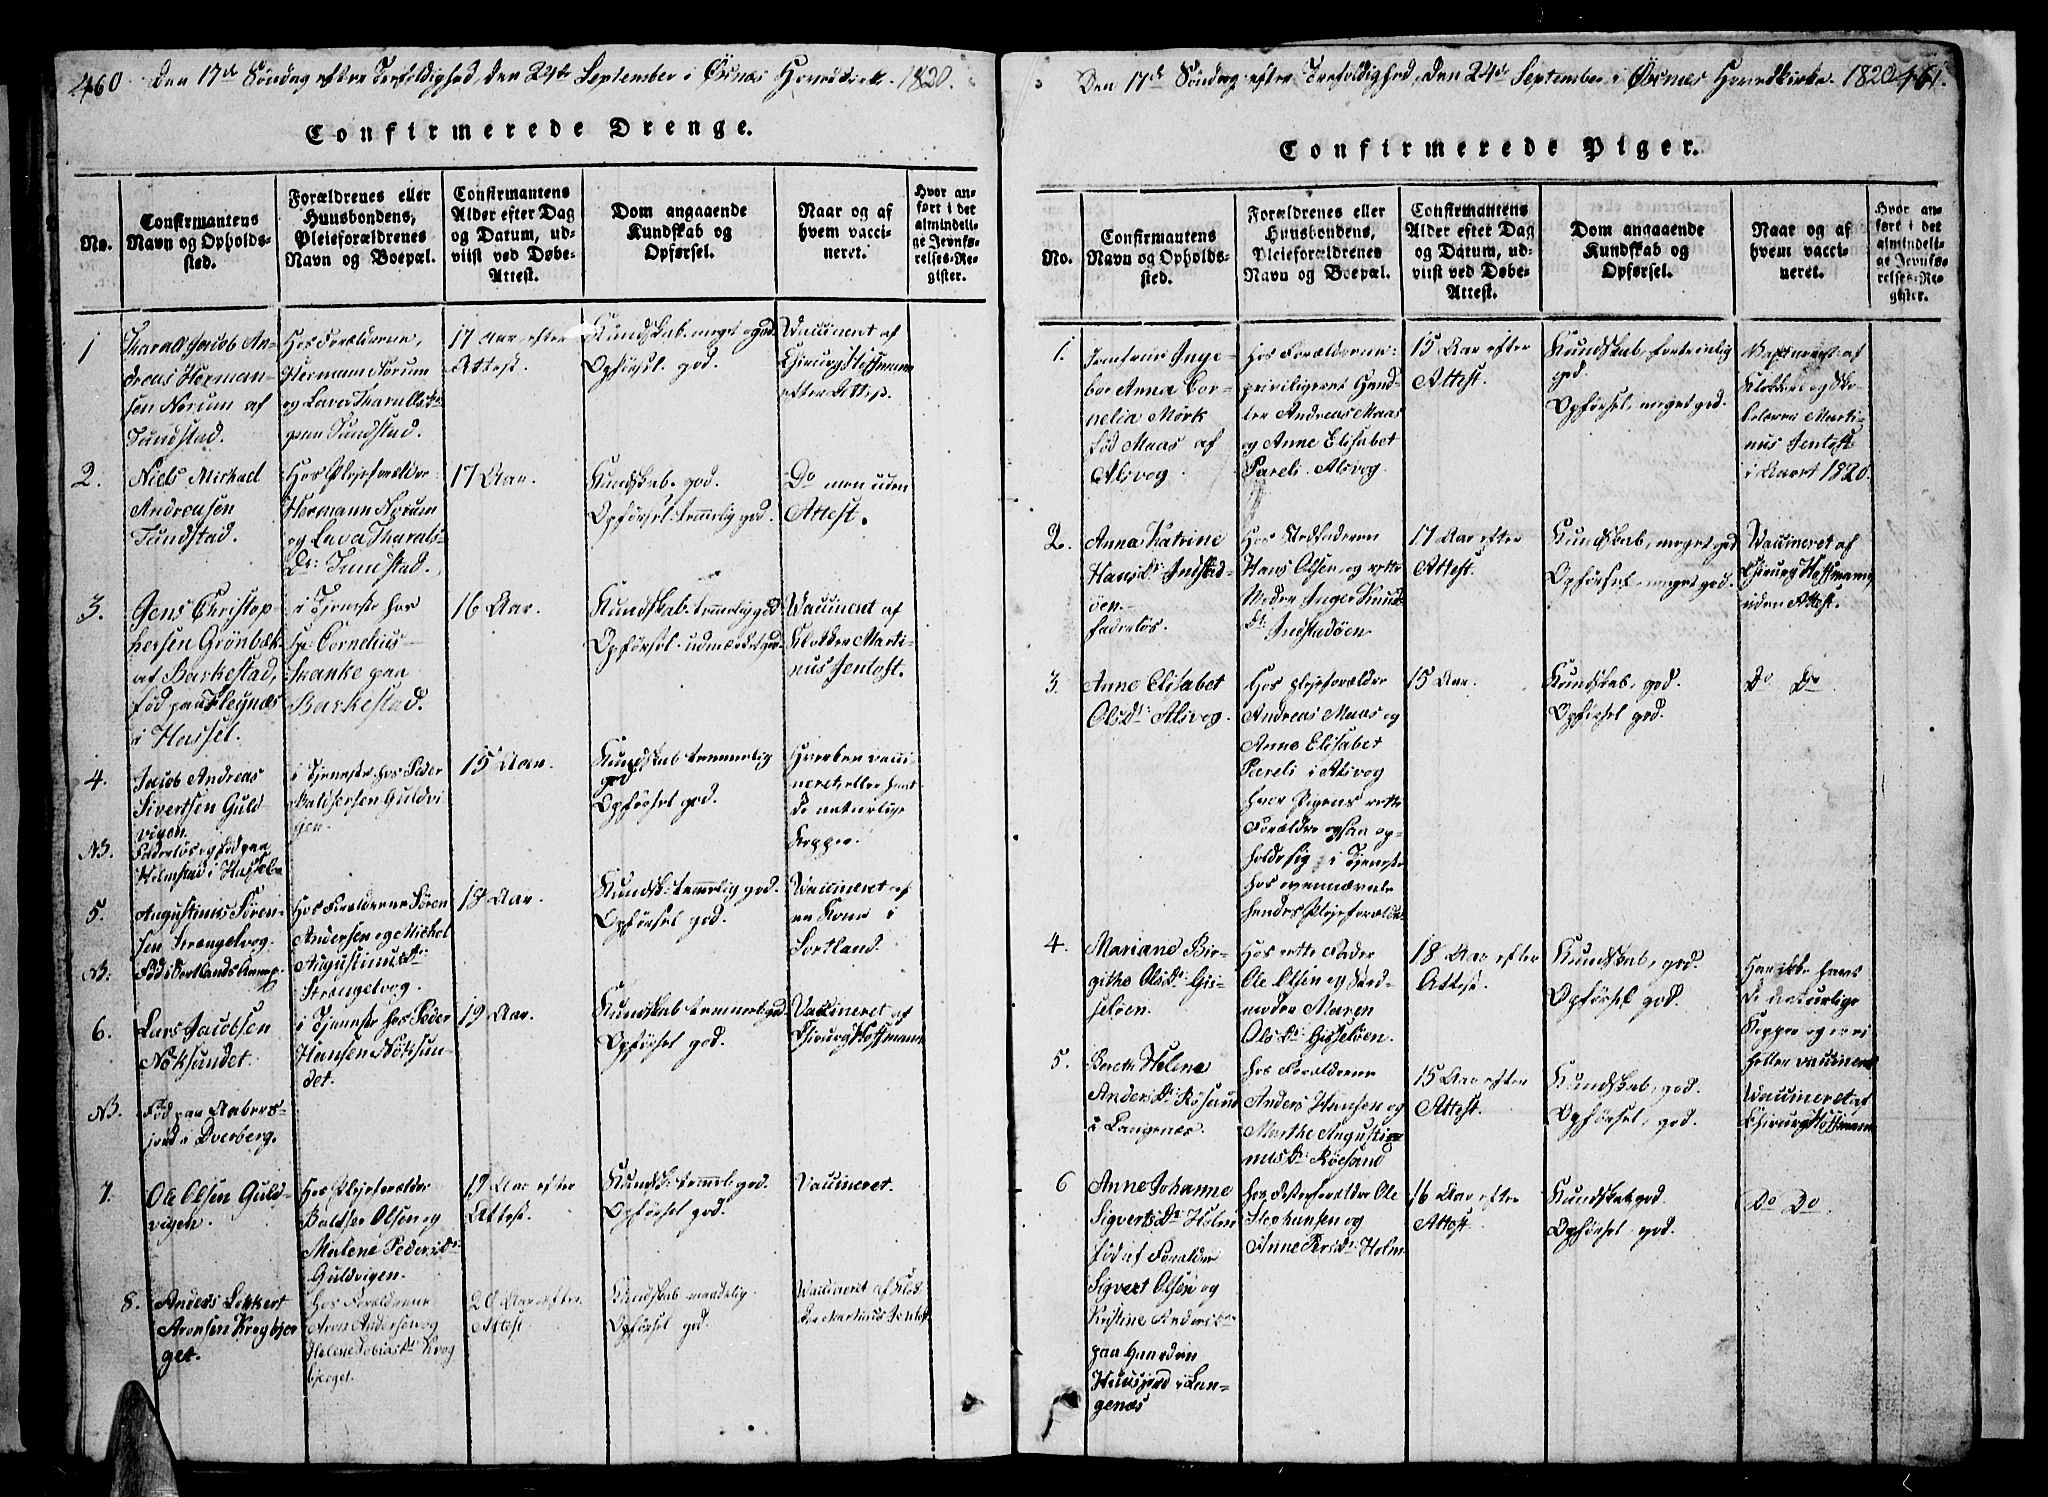 460 Den 17de Söndag efter Trefoldighed, den 24de September i Öxnæs Hovedkirke 1820.
Confirmerede Drenge.
No.
Confirmantens
Navn og Opholds-
sted.
Forældrenes eller
Huusbondens,
Pleieforældrenes
Navn og Boepæl.
Confirmantens
Alder efter Dag
og Datum, ud-
viist ved Døbe-
Attest.
Dom angaaende
Kundskab og
Opførsel.
Naar og af
hvem vacci-
neret.
Hvor an-
ført i det
almindeli-
ge Jevnfø-
relses-Re-
gister.
1
Tharall Jacob An-
dreas Herman-
sen Norum af
Tundstad.
Hos Forældrene,
Hermann Norum
og Lava Tharalls
paa Tundstad.
17 Aar, efter
Attest.
Kundskab. meget god.
Opförsel. god.
Vaccineret af
Chirurg Hoffmann
efter Attest.
2.
Niels Michael
Andreasen
Tundstad.
Hos Plejeforældre
Hermann Norum
og Lava Tharals
Dr: Tundstad.
17 Aar.
Kundskab. god.
Opförsel. temmelig god.
Do men uden
Attest.
3.
Jens Christop
hersen Grönbæk
af Barkestad,
född paa Fleynæs
i Hassel.
i Tjeneste hos
Hr: Cornelius
Skanke paa
Barkestad.
16 Aar.
Kundskab. temmelig god.
Opförsel. udmærket god.
Vaccineret af
Klokker Marti-
nus Jentoft.
4.
Jacob Andreas
Sivertsen Guld-
vigen.
NB. Faderlös og föd paa
Holmstad i Hassel
i Tjeneste hos Peder
Baldsersen Guldvi
gen.
15 Aar.
Kundskab temmelig
god
Opförsel god.
Hverken vacci-
neret eller havt
de naturlige
Kopper.
5.
Augustinus Sören-
sen Strengelvog
NB. Föd i Sortlands Annex.
Hos Forældrene Sören
Andersen og Michel
Augustinusdr:
Strengelvog.
18 Aar.
Kundsk: temmelig god.
Opförsel god.
Vaccineret af
en Kone i
Sortland.
6.
Lars Jacobsen
Nöksundet.
NB. Föd paa Aabers-
jord i Dverberg.
i Tjeneste hos Peder
Hansen Nöksun-
det.
19 Aar.
Kundskab temmel: god
Opförsel god.
Vaccineret af
Chirurg Hoffmann
7.
Ole Olsen Guld-
vigen.
Hos Plejeforældre
Baltser Olsen og
Malene Pedersdr:
Guldvigen.
19 Aar efter
Attest.
Kundsk: temmel: god.
Opförsel god.
Vaccineret.
8.
Anders Lokkert
Aronsen Krogbjer
get.
Hos Forældrene
Aron Andersen og
Helene Tobiasdr Krog
bjerget.
20 Aar efter
Attest.
Kundskab maadelig.
Opförsel god.
Vaccineret af Klok-
ker Martinus Jentoft
Den 17de Söndag efter Trefoldighed, den 24de September i Öxnæs Hovedkirke. 1820 461.
Confirmerede Piger.
No.
Confirmantens
Navn og Opholds-
sted.
Forældrenes eller
Huusbondens,
Pleieforældrenes
Navn og Boepæl.
Confirmantens
Alder efter Dag
og Datum, ud-
viist ved Døbe-
Attest.
Dom angaaende
Kundskab og
Opførsel.
Naar og af
hvem vacci-
neret.
Hvor an-
ført i det
almindeli-
ge Jevnfø-
relses-Re-
gister.
1.
Jomfrue Inge-
bor Anna Cor-
nelia Mörk
föd Maas af
Alsvog.
Hos Forældrene
privilegeret Hand-
ler Andreas Maas
og Anne Elisabet
Pareli. Alsvog.
15 Aar efter
Attest.
Kundskab, fortrinlig
god.
Opförsel, meget god.
Vaccineret af
Klokker og Sko-
lelærer Marti-
nus Jentoft
i Aaret 1820.
2.
Anna Katrine
Hansdr: Indstad-
öen.
faderlös.
Hos Stedfaderen
Hans Olsen, og rette
Moder Inger Knud
dr: Indstadöen.
17 Aar efter
Attest.
Kundskab, meget god
Opförsel meget god.
Vaccineret af
Chirurg Hoffmann,
uden Attest.
3.
Anne Elisabet
Olsdr: Alsvog.
Hos plejeforældre
Andreas Maas og
Anne Elisabet
Pareli i Alsvog
hvor Pigens rette
Forældre ogsaa op-
holde sig i Tjeneste
hos ovennævnte
hendes Plejeforældre
15 Aar.
Kundskab, god.
Opförsel god.
Do Do
4.
Mariane Bir-
githe Olsdr: Gis-
selöen.
Hos rette Fader
Ole Olsen og Sted-
moder Maren
Olsdr: Gisselöen.
18 Aar efter
Attest.
Kundskab, god.
Opförsel god.
Har ikke havt
de naturlige
Kopper og er ei
heller vaccineret
5.
Bereth Helena
Andersdr: Rösand
i Langenæs.
hos Forældrene
Anders Hansen og
Marthe Augusti-
nusdr: Rösand
15 Aar efter
Attest.
Kundskab, god.
Opförsel, god.
Vaccineret af
Chirurg Hoffmann
6
Anne Johanne
Sigvertsdr: Holm
föd af Forældre
Sigvert Olsen og
Kristine Andersdr
paa Gaarden
Huusjord i Lan-
genæs
hos Fosterforældre Ole
Stephansen og
Anne Persdr: Holm
16 Aar efter
Attest.
Kundskab god.
Opförsel god.
Do Do